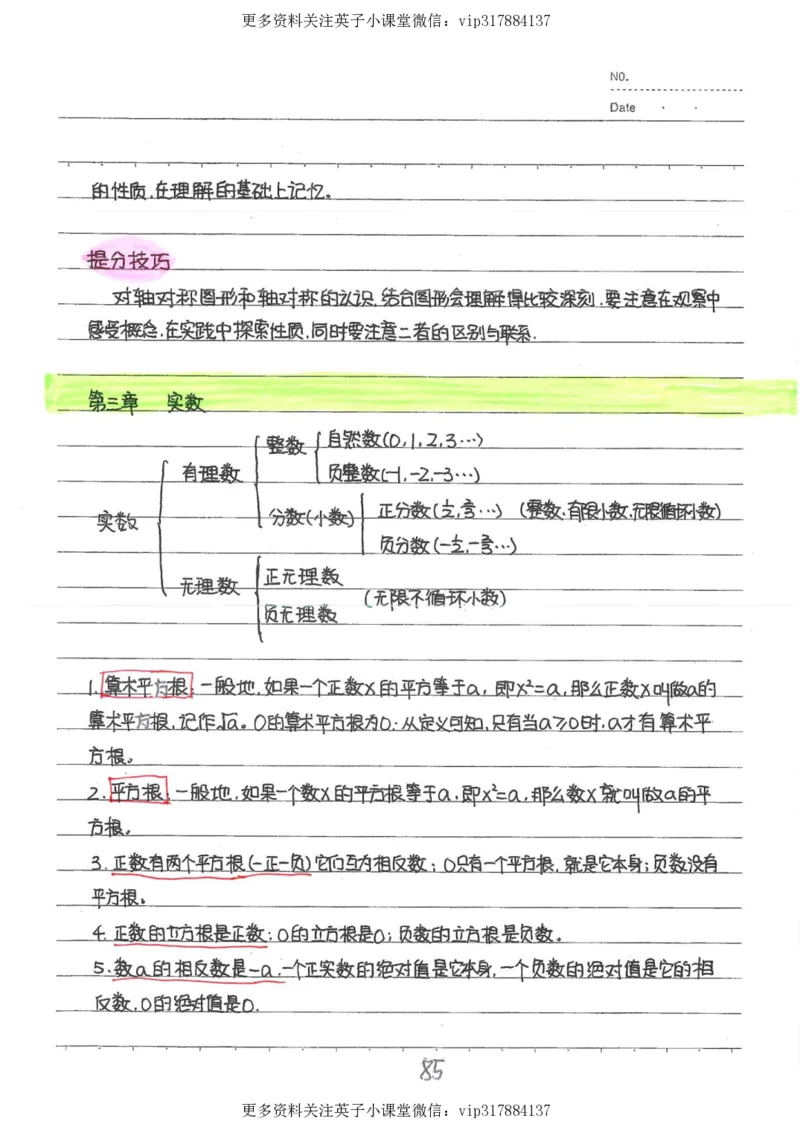 更多资料关注英子小课堂微信：vip317884137
NO.
Date
的性质,在理解的基础上记忆。
提分技巧
对轴对称图形和轴对称的认识,结合图形会理解得比较深刻,要注意在观察中
感受概念,在实践中探索性质,同时要注意二者的区别与联系.
第三章 实数
整数 自然数(0,1,2,3…)
有理数 负整数(-1,-2,-3…)
实数 分数(小数) 正分数(½,⅓…) (整数,有限小数,无限循环小数)
负分数(-½,-⅓…)
无理数 正无理数
(无限不循环小数)
负无理数
1.算术平方根:一般地,如果一个正数x的平方等于a,即x²=a,那么正数x叫做a的
算术平方根,记作√a。0的算术平方根为0;从定义可知,只有当a≥0时,a才有算术平
方根。
2.平方根:一般地,如果一个数x的平方根等于a,即x²=a,那么数x就叫做a的平
方根。
3.正数有两个平方根(一正一负)它们互为相反数;0只有一个平方根,就是它本身;负数没有
平方根。
4.正数的立方根是正数;0的立方根是0;负数的立方根是负数。
5.数a的相反数是-a,一个正实数的绝对值是它本身,一个负数的绝对值是它的相
反数,0的绝对值是0.
85
更多资料关注英子小课堂微信：vip317884137